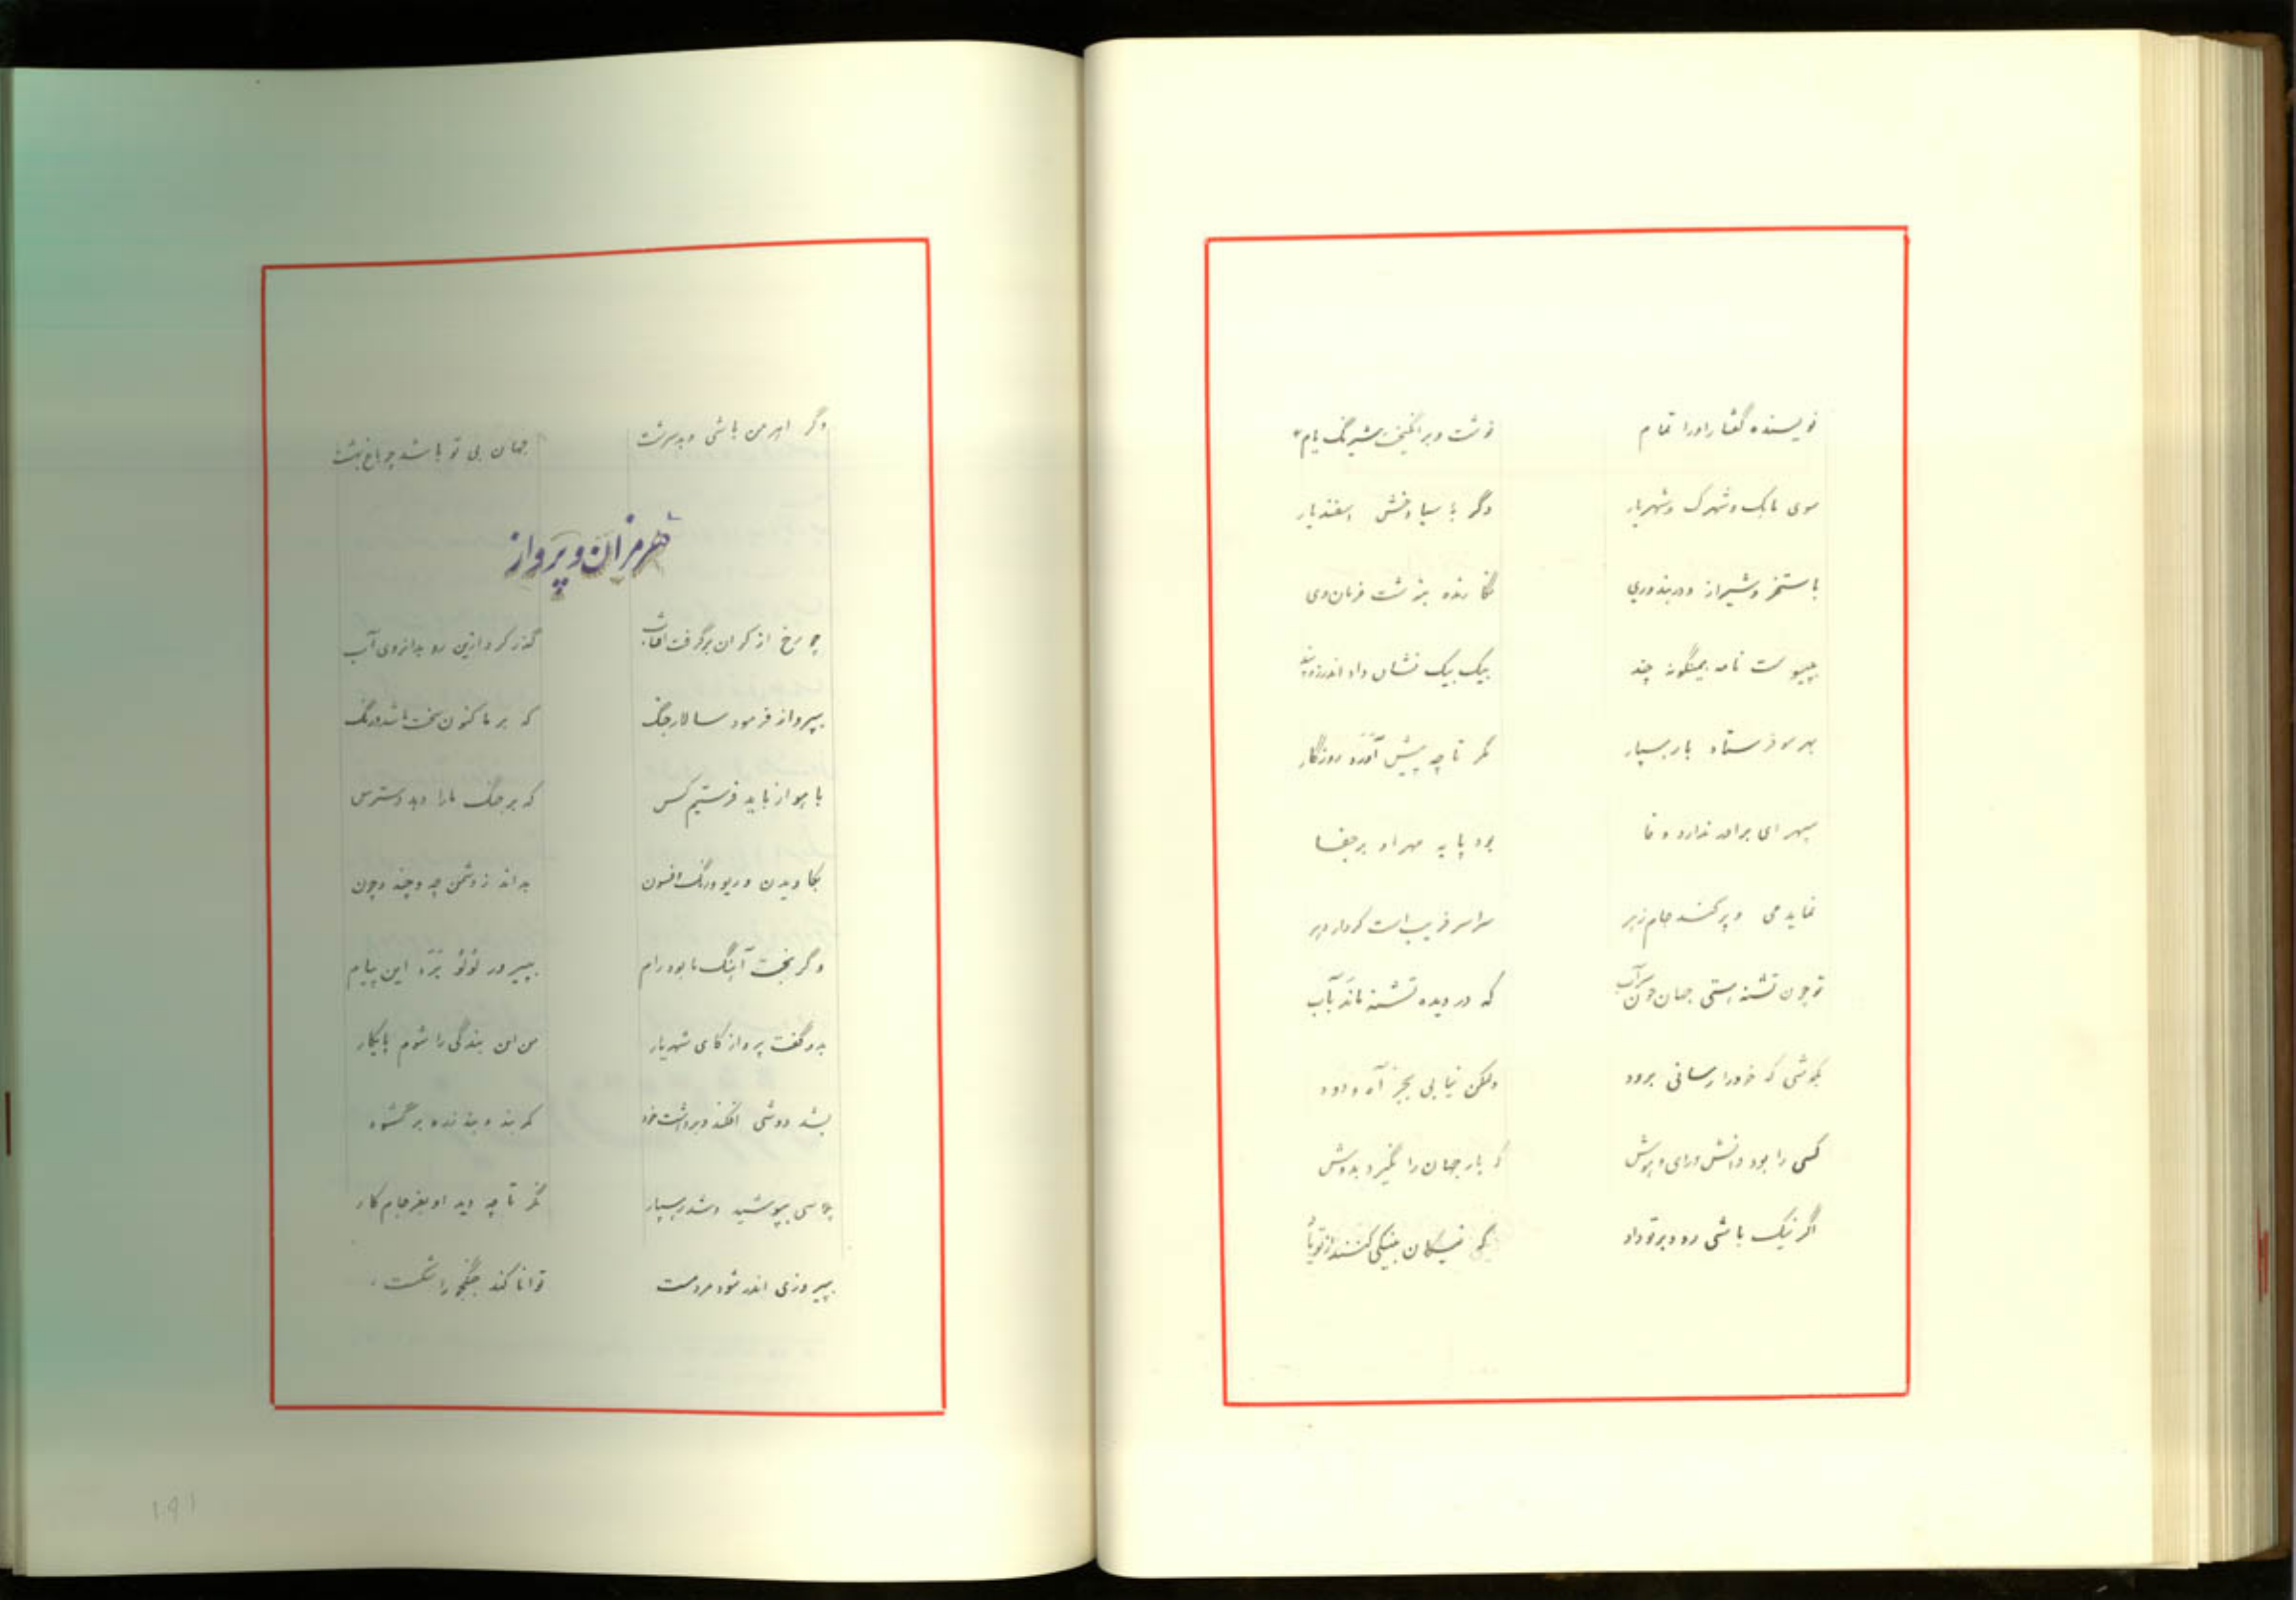 نویسنده گفتار او را تمام    نوشت و برانگیخت شبرنگ یام
سوی بابک و شهرک و شهریار    دگر با سیاوخش اسفندیار
باستخر و شیراز و دربند و ری    نگارنده بنوشت فرمان وی
بپیوست نامه بهمگونه چند    بیک بیک نشان داد اندرز و پند
بهر سو فرستاد بار بسپار    نگر تا چه پیش آورد روزگار
سپهر ای برادر ندارد وفا    بود پایه مهر او بر جفا
نماید می و پر کند جام زهر    سراسر فریب است کردار دهر
تو چون تشنه هستی جهان چون سراب    که در دیده تشنه ماند بآب
بکوشی که خود را رسانی برود    ولکن نیابی بجز آه و دود
کسی را بود دانش و رای و هوش    که بار جهان را نگیرد بدوش
اگر نیک باشی رود بر تو داد    که نیکان بنیکی کنند از تو یاد
وگر اهرمن باشی و بدسرشت    جهان بی تو باشد چو باغ بهشت
هرمزان و پرواز
چو رخ از کران برگرفت آفتاب    گذر کرد ازین رو بدانروی آب
بپرواز فرمود سالار جنگ    که بر ما کنون سخت باشد درنگ
باهواز باید فرستیم کس    که بر جنگ ما را دهد دسترس
بکاویدن و ریو و رنگ و افسون    بداند ز دشمن چه و چند و چون
وگر بخت آهنگ ما بود رام    بپیروز لؤلؤ برد این پیام
بدو گفت پرواز کای شهریار    من این بندگی را شوم پایکار
بشد دوشی افکند و برداشت خود    کمربند و بند زره بر گشود
پلاسی بپوشید و شد رهسپار    نگر تا چه دید او بفرجام کار
بپیروزی اندر شود مرد مست    توانا کند جنگجو را شکست
۱۹۱